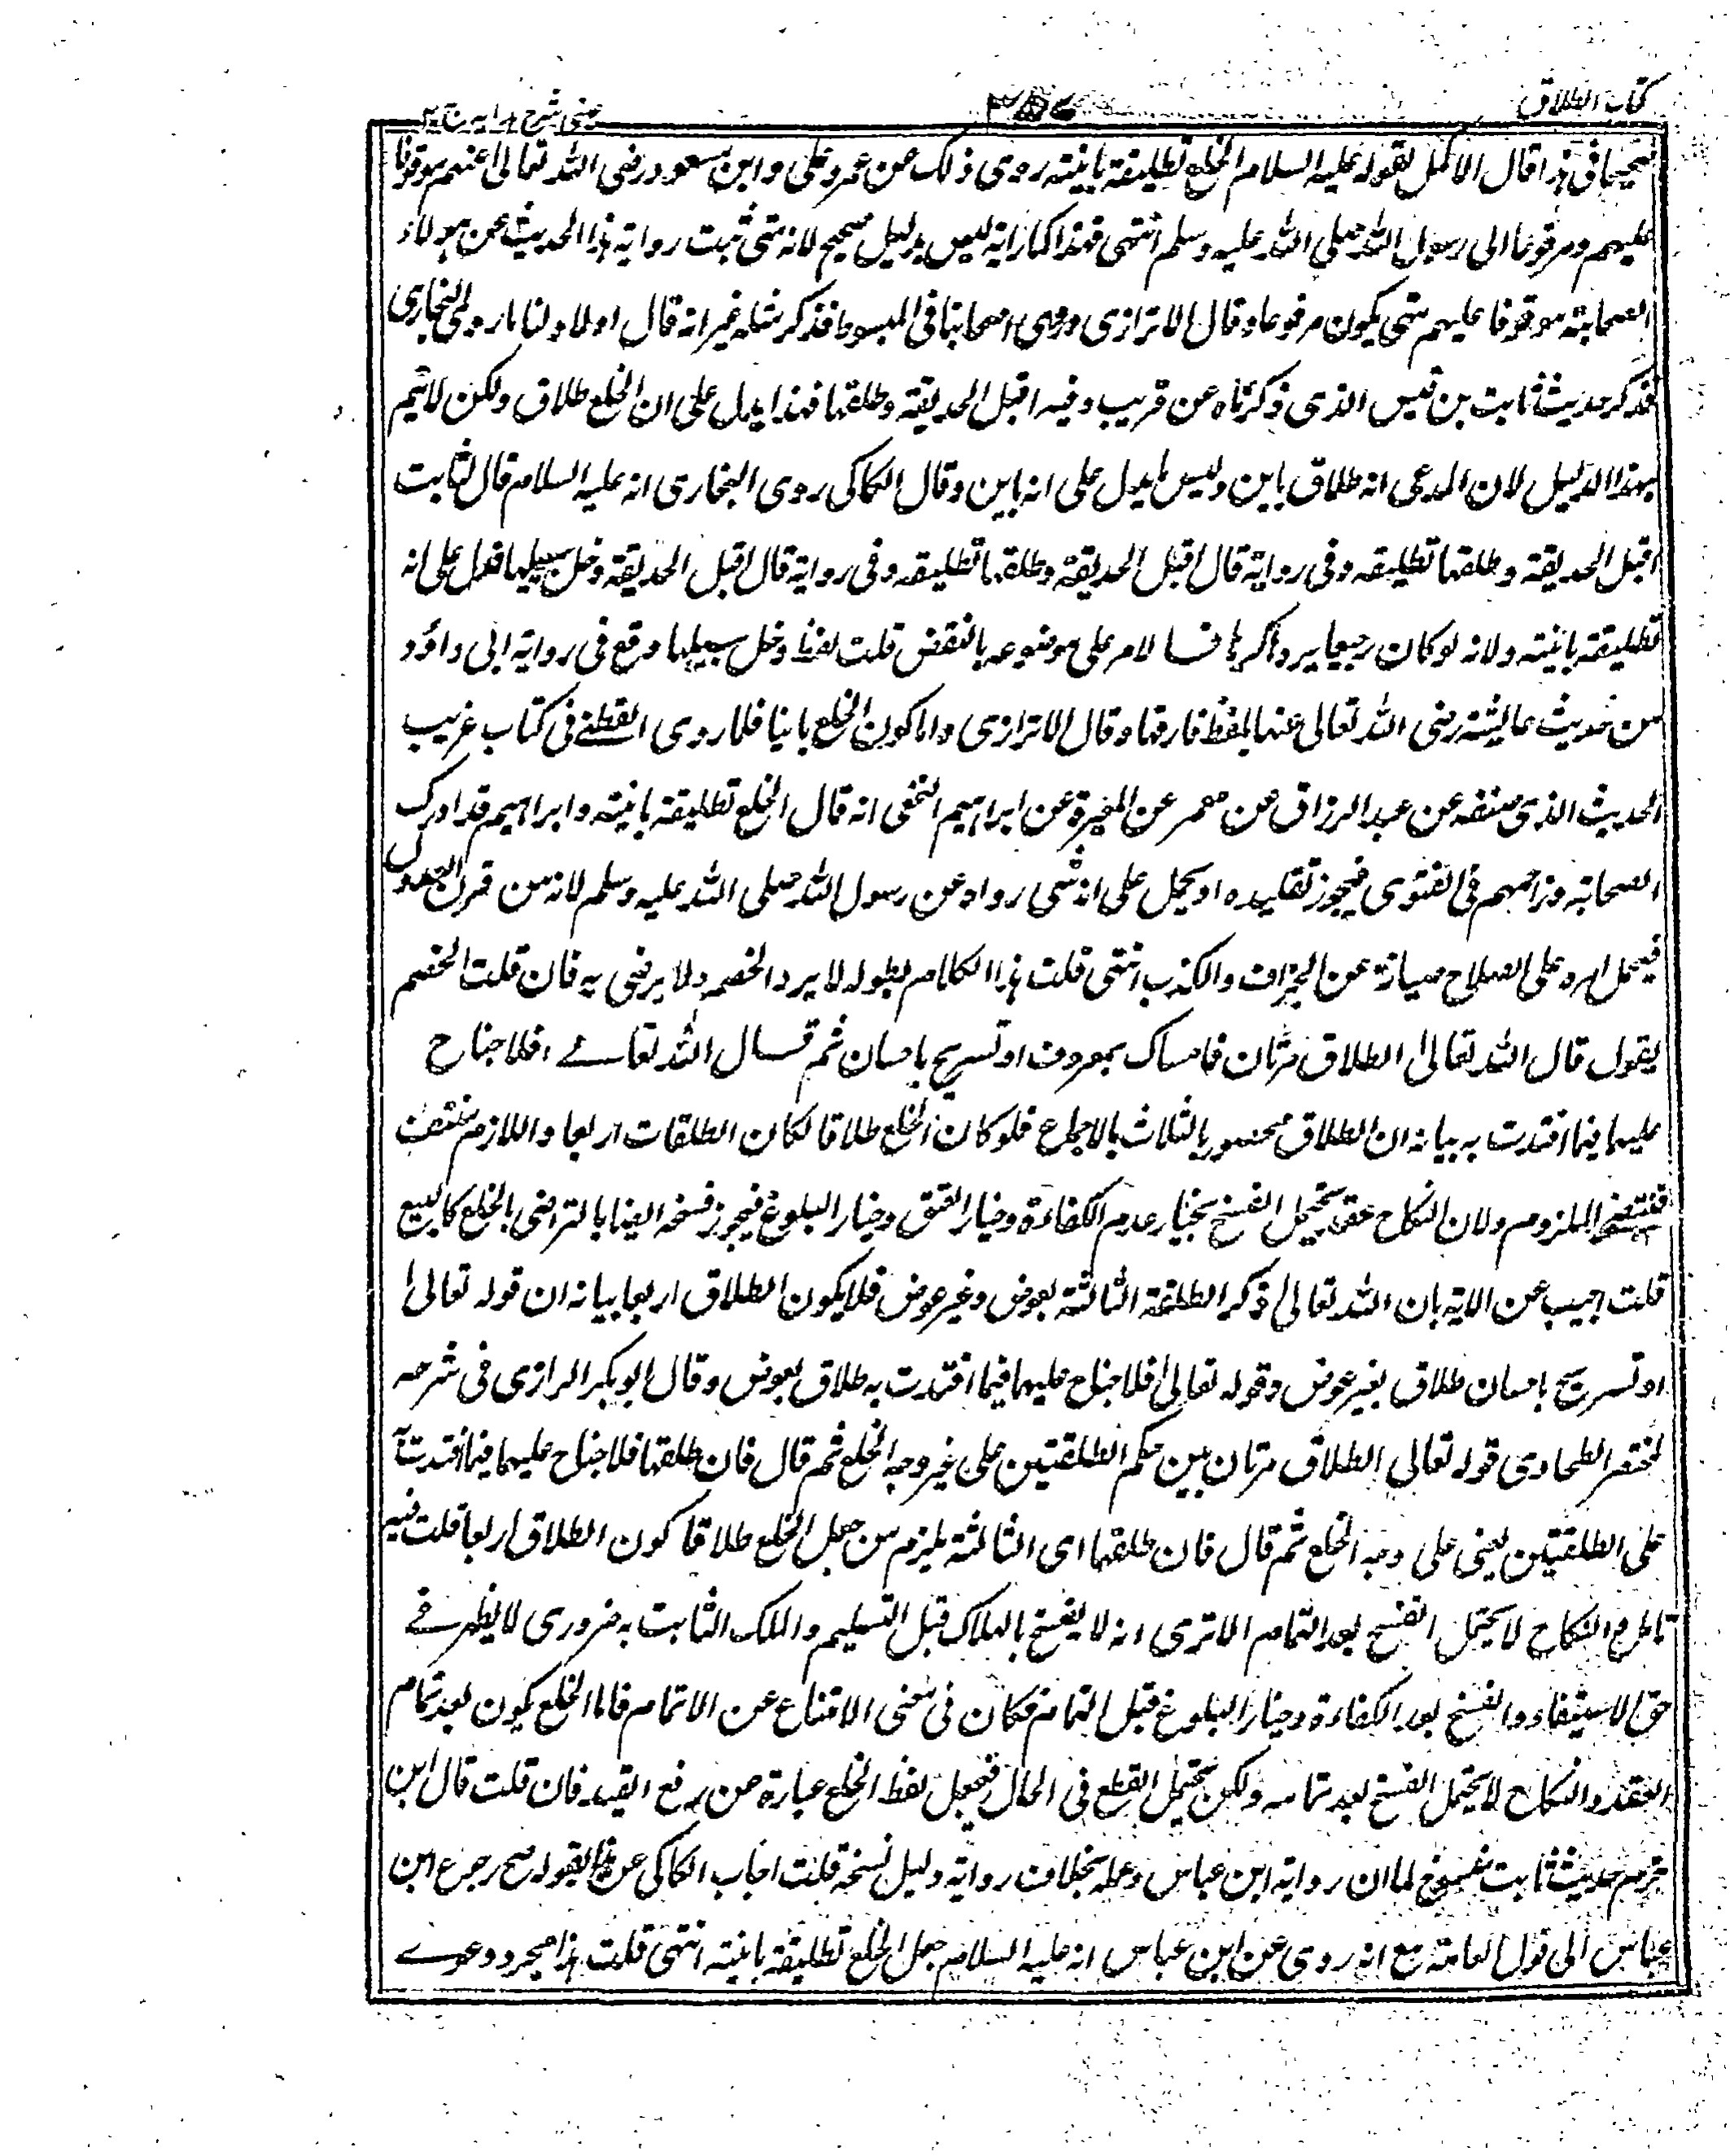 کتاب الطلاق
۳۵۷
عینی شرح ہدایہ ج ۲
صحیحا فی ہذا قال الاکمل لقولہ علیہ السلام الخلع تطلیقۃ باینۃ روی ذلک عن عمر وعلی وابن مسعود رضی اللہ تعالی عنہم موقوفا
علیہم ومرفوعا الی رسول اللہ صلی اللہ علیہ وسلم انتہی فہذا کما رایتہ لیس بدلیل صحیح لانہ متی ثبت روایۃ ہذا الحدیث عن ہولاء
الصحابۃ موقوفا علیہم متی یکون مرفوعا وقال الاترازی وروی اصحابنا فی المبسوط فذکر مثلہ غیر انہ قال اولا ولنا ما روی البخاری
فذکر حدیث ثابت بن قیس الذی ذکرناہ عن قریب وفیہ اقبل الحدیقۃ وطلقہا فہذا یدل علی ان الخلع طلاق ولکن لا یتم
بہذا الدلیل لان المدعی انہ طلاق باین ولیس یدل علی انہ باین وقال الکاکی روی البخاری انہ علیہ السلام قال لثابت
اقبل الحدیقۃ وطلقہا تطلیقہ وفی روایۃ قال اقبل الحدیقۃ وطلقہا تطلیقہ وفی روایۃ قال اقبل الحدیقۃ وخل سبیلہا فدل علی انہ
تطلیقۃ باینۃ ولانہ لو کان رجعیا یردہا کرہا فسا لامر علی موضوعہ بالنقض قلت لفظ وخل سبیلہا وقع فی روایۃ ابی داؤد
من حدیث عایشۃ رضی اللہ تعالی عنہا بلفظ فارقہا وقال الاترازی واما کون الخلع باینا فلما روی القطنی فی کتاب غریب
الحدیث الذی صنفہ عن عبد الرزاق عن معمر عن المغیرۃ عن ابراہیم النخعی انہ قال الخلع تطلیقۃ باینۃ وابراہیم قد ادرک
الصحابۃ وزاحمہم فی الفتوی فیجوز تقلیدہ او یحمل علی انہ شی رواہ عن رسول اللہ صلی اللہ علیہ وسلم لانہ من قرن العدول
فیحمل امرہ علی الصلاح صیانۃ عن الجزاف والکذب انتہی قلت ہذا الکلام بطولہ لا یرد الخصم ولا یرضی بہ فان قلت الخصم
یقول قال اللہ تعالیٰ الطلاق مرتان فامساک بمعروف او تسریح باحسان ثم قسال اللہ تعالے فلا جناح
علیہما فیما افتدت بہ بیانہ ان الطلاق محصور بالثلاث بالاجماع فلو کان الخلع طلاقا لکان الطلقات اربعا واللازم منتف
فینتفی الملزوم ولان النکاح عقد یحتمل الفسخ بخیار عدم الکفاءۃ وخیار العتق وخیار البلوغ فیجوز فسخہ ایضا بالتراضی بالخلع کالبیع
قلت اجیب عن الایۃ بان اللہ تعالیٰ ذکر الطلقۃ الثالثۃ بعوض وغیر عوض فلا یکون الطلاق اربعا بیانہ ان قولہ تعالیٰ
او تسریح باحسان طلاق بغیر عوض وقولہ تعالیٰ فلا جناح علیہما فیما افتدت بہ طلاق بعوض وقال ابو بکر الرازی فی شرحہ
لمختصر الطحاوی قولہ تعالی الطلاق مرتان بین حکم الطلقتین علی غیر وجہ الخلع ثم قال فان طلقہا فلا جناح علیہما فیما افتدت بہ
علی الطلقتین یعنی علی وجہ الخلع ثم قال فان طلقہا ای الثالثۃ یلزم من جعل الخلع طلاقا کون الطلاق اربعا قلت فیہ
تامل والنکاح لا یحتمل الفسخ بعد التمام الا تری انہ لا یفسخ بالہلاک قبل التسلیم والملک الثابت بہ ضروری لا یظہر فے
حق الاستیفاء والفسخ بعد الکفاءۃ وخیار البلوغ قبل التمام فکان فی معنی الامتناع عن الاتمام فاما الخلع یکون بعد تمام
العقد والنکاح لا یحتمل الفسخ بعد تمامہ ولکن یحتمل القطع فی الحال فیجعل لفظ الخلع عبارۃ عن رفع القید فان قلت قال ابن
حزم حدیث ثابت منسوخ لما ان روایۃ ابن عباس وعملہ بخلاف روایتہ دلیل نسخہ قلت اجاب الکاکی عن ہذا بقولہ صح رجوع ابن
عباس الی قول العامۃ مع انہ روی عن ابن عباس انہ علیہ السلام جعل الخلع تطلیقۃ باینۃ انتہی قلت ہذا مجرد دعوے